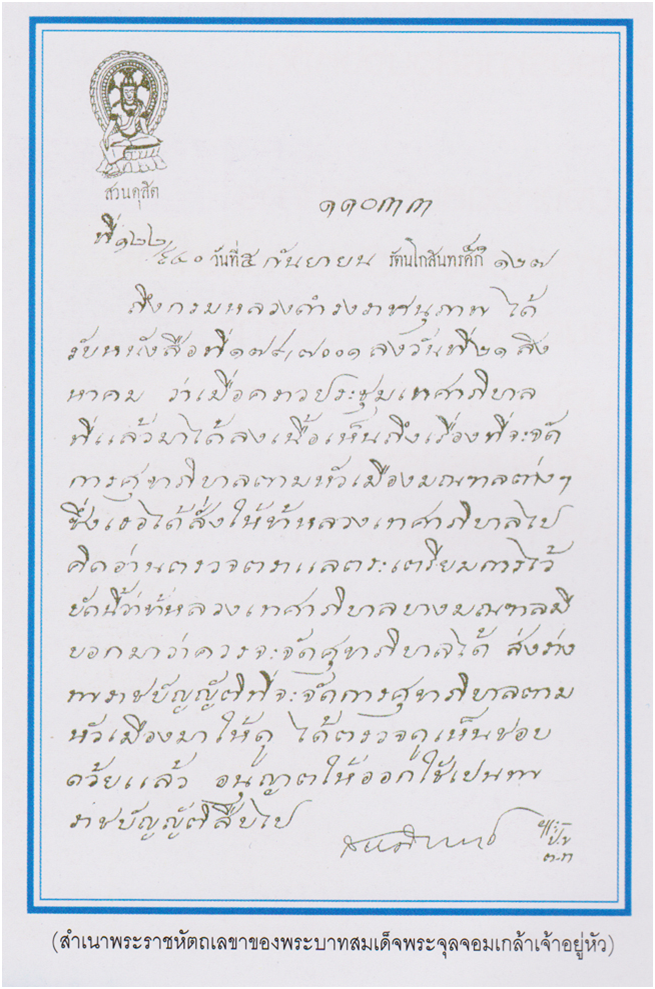 สวนดุสิต
๑๑๐๓๓
ที่ ๑๒๒/๕๔๐ วันที่ ๕ กันยายน รัตนโกสินทรศ๊ก ๑๒๗
ถึงกรมหลวงดำรงราชานุภาพ ได้
รับหนังสือที่ ๑๗๙/๗๐๐๑ ลงวันที่ ๒๑ สิง
หาคม ว่าเมื่อคราวประชุมเทศาภิบาล
ที่แล้วมาได้ลงเนื้อเห็นถึงเรื่องที่จะจัด
การศุขาภิบาลตามหัวเมืองมณฑลต่างๆ
ซึ่งเธอได้สั่งให้ข้าหลวงเทศาภิบาลไป
คิดอ่านตรวจตราแลตระเตรียมการไว้
บัดนี้ข้าหลวงเทศาภิบาลบางมณฑลมี
บอกมาว่าควรจะจัดศุขาภิบาลได้ ส่งร่าง
พราชบัญญัติที่จะจัดการศุขาภิบาลตาม
หัวเมืองมาให้ดู ได้ตรวจดูเห็นชอบ
ด้วยแล้ว อนุญาตให้ออกใช้เปนพ
ราชบัญญัติสืบไป
(สำเนาพระราชหัตถเลขาของพระบาทสมเด็จพระจุลจอมเกล้าเจ้าอยู่หัว)